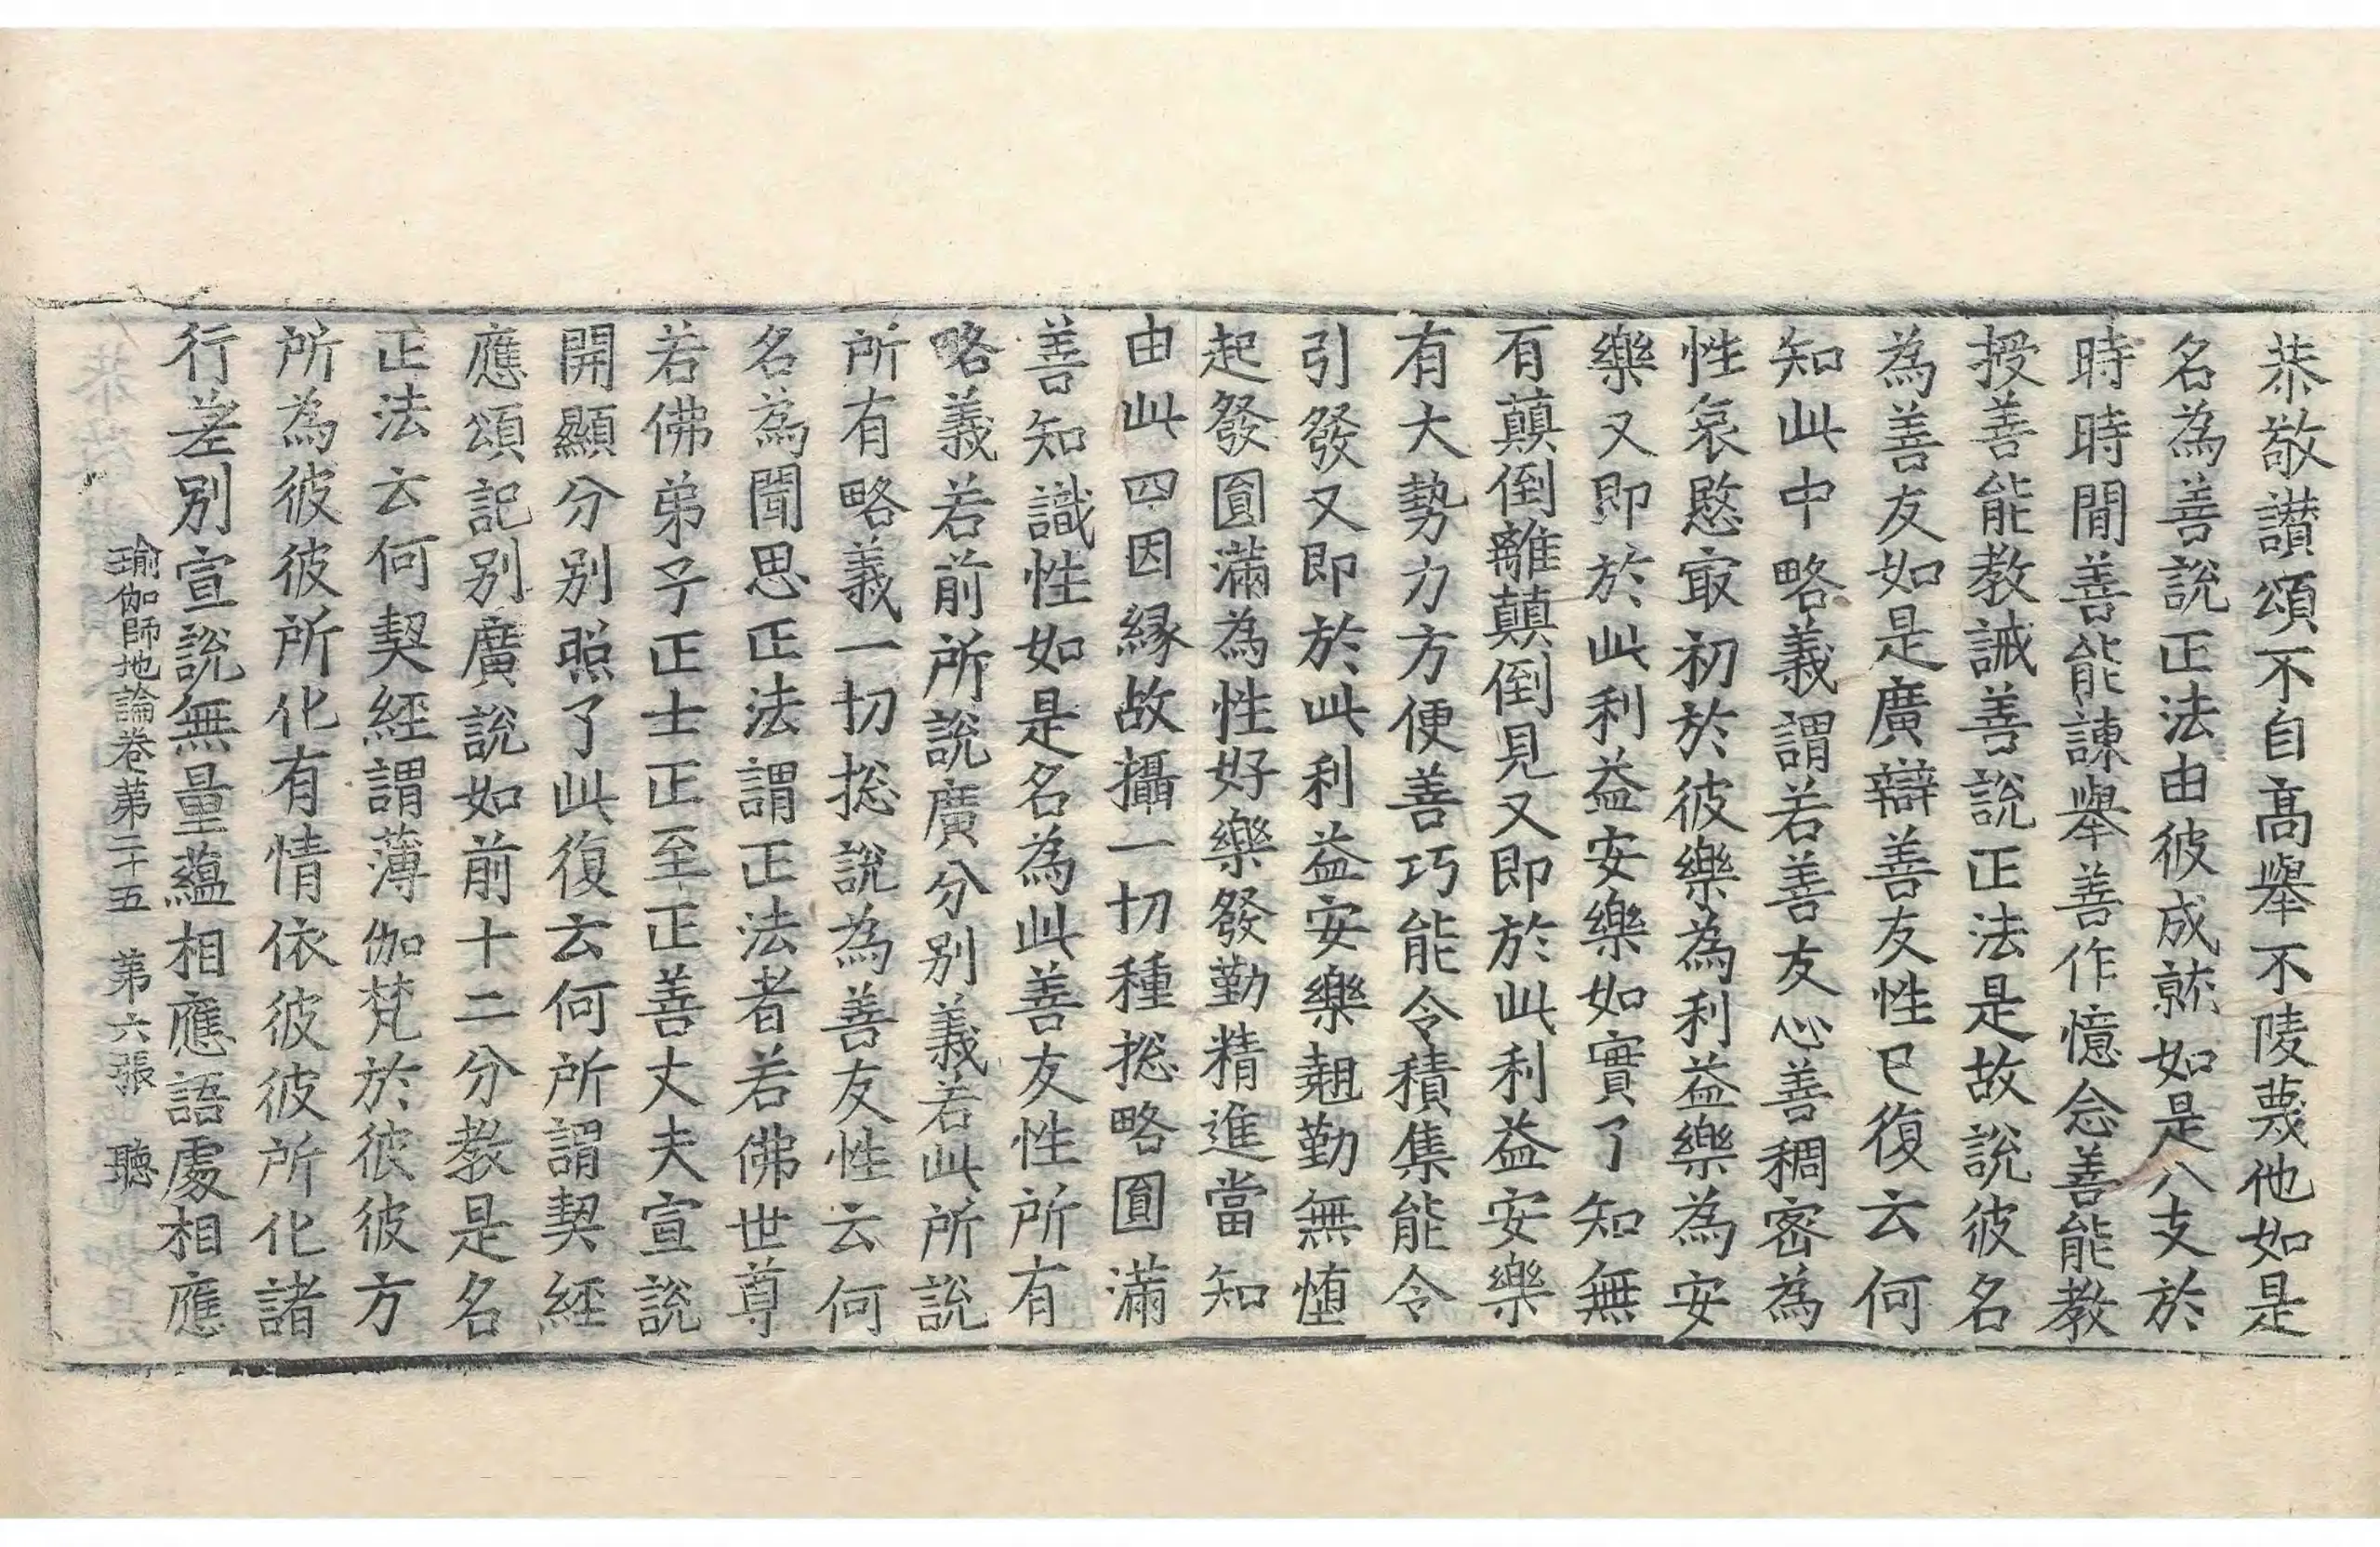 恭敬讃頌不自髙舉不陵蔑他如是
名為善說正法由彼成就如是八支於
時時間善能諫舉善作憶念善能教
授善能教誡善說正法是故說彼名
為善友如是廣辯善友性已復云何
知此中略義謂若善友心善稠密為
性哀愍㝡初於彼樂為利益樂為安
樂又即於此利益安樂如實了知無
有顛倒離顛倒見又即於此利益安樂
有大勢力方便善巧能令積集能令
引發又即於此利益安樂翹勤無墯
起發圎滿為性好樂發勤精進當知
由此四因縁故攝一切種揔略圎滿
善知識性如是名為此善友性所有
略義若前所說廣分別義若此所說
所有略義一切揔說為善友性云何
名為聞思正法謂正法者若佛世尊
若佛弟子正士正至正善丈夫宣說
開顯分別照了此復云何所謂契經
應頌記別廣說如前十二分教是名
正法云何契經謂薄伽梵於彼彼方
所為彼彼所化有情依彼彼所化諸
行差別宣說無量蘊相應語處相應
瑜伽師地論卷第二十五　第六張　聽